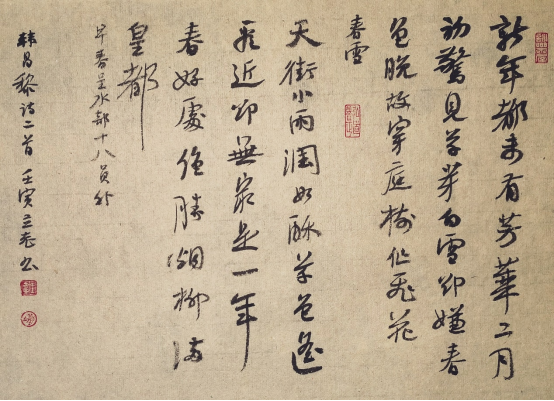 新年都未有芳華二月
初驚見草芽白雪却嫌春
色晚故穿庭樹作飛花
春雪
天街小雨潤如酥草色遙
看近却無最是一年
春好處絕勝烟柳滿
皇都
早春呈水部十八員外
韓昌黎詩二首 壬寅